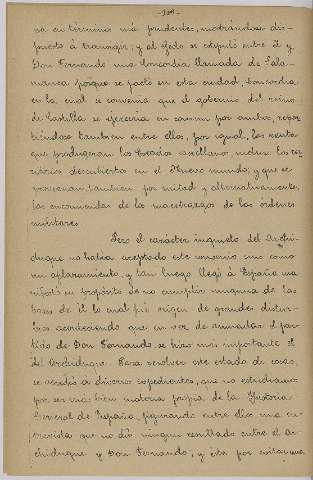 -128-
va en término más prudente, mostrándose dis-
puesto á transigir; y al efecto se estipuló entre él y
Don Fernando una Concordia llamada de Sala-
manca porque se pactó en esta ciudad, Concordia
en la cual se convenia que el gobierno del reino
de Castilla se ejerceria en comun por ambos, repar-
tiendose tambien entre ellos, por igual, las rentas
que produgeran los Estados castellanos inclusos los te-
rritorios descubiertos en el Nuevo mundo, y que se
proveerian tambien por mitad y alternativamente
las encomiendas de los maestrazgos de las órdenes
militares.
Pero el carácter inquieto del Archi-
duque no habia aceptado este convenio sino como
un aplazamiento, y tan luego llegó á España ma-
nifestó su propósito de no cumplir ninguna de las
bases de él lo cual fué origen de grandes distur-
bios aconteciendo que en vez de aumentar el par-
tido de Don Fernando se hizo más importante el
del Archiduque. Para resolver este estado de cosas,
se acudió á diversos expedientes, que no estudiamos
por ser más bien materia propia de la Historia
General de España, figurando entre ellos una en-
trevista que no dió ningun resultado entre el Ar-
chiduque y Don Fernando; y éste por evitar una